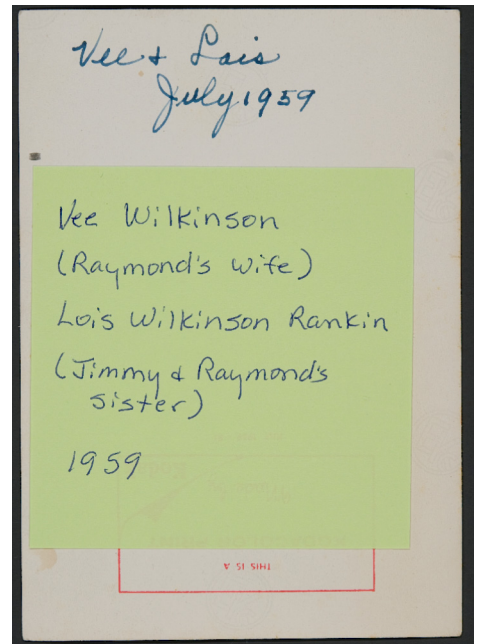 Vee & Lois
July 1959
Vee Wilkinson
(Raymond's wife)
Lois Wilkinson Rankin
(Jimmy & Raymond's
sister)
1959
THIS IS A